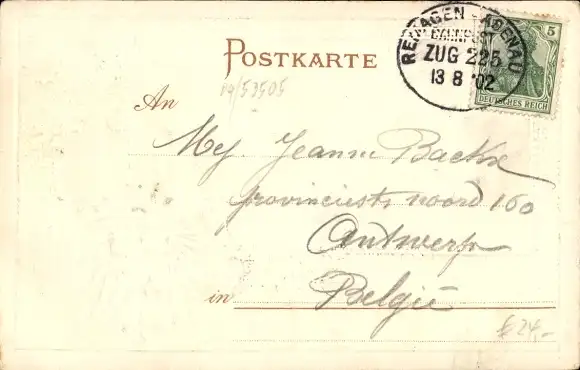 REMAGEN - ADENAU
BAHNPOST
ZUG 225
13 8 02
5
DEUTSCHES REICH
POSTKARTE
An
Mej. Jeanne
provinciestr noord 160
Antwerpn
in België